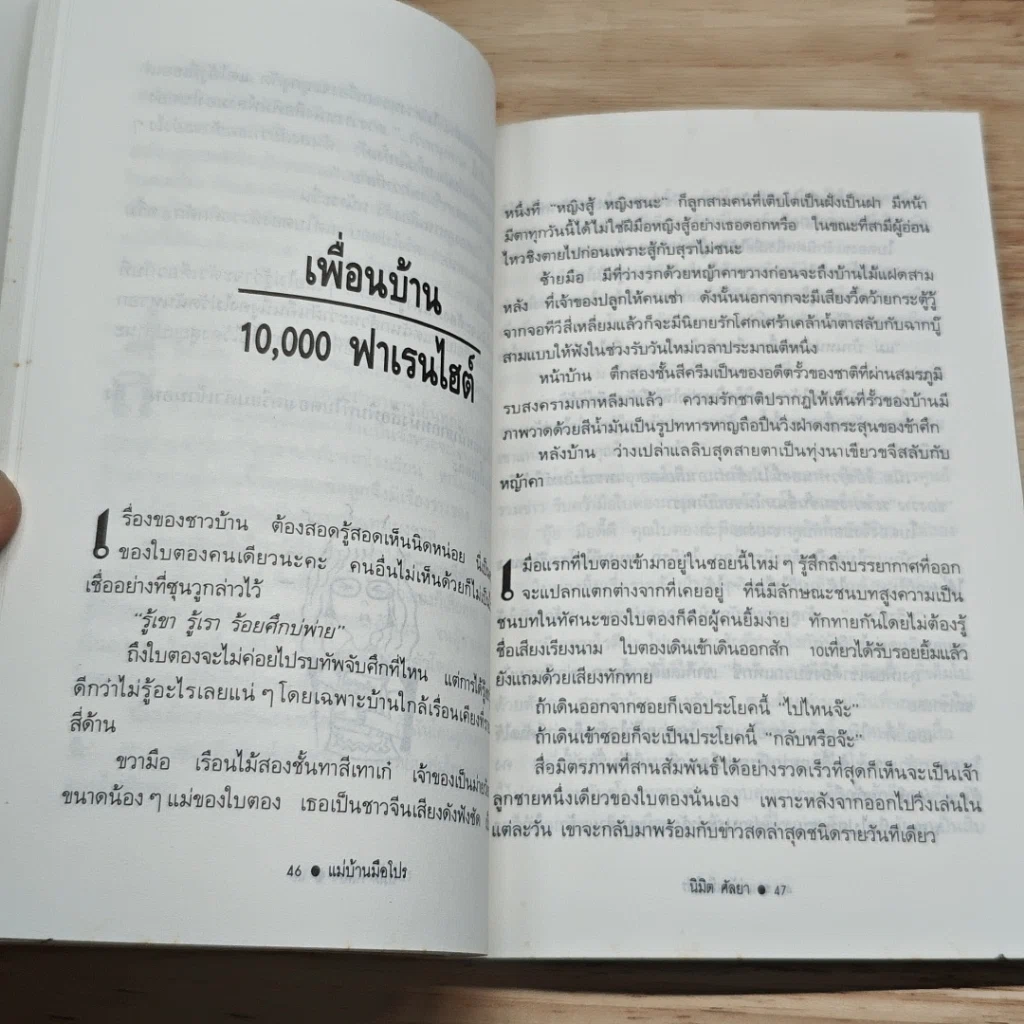 เพื่อนบ้าน
10,000 ฟาเรนไฮต์
เรื่องของชาวบ้าน ต้องสอดรู้สอดเห็นนิดหน่อย
ของใบตองคนเดียวนะคะ คนอื่นไม่เห็นด้วยก็ไม่
เชื่ออย่างที่ซุนวูกล่าวไว้
“รู้เขา รู้เรา ร้อยศึกบ่พ่าย”
ถึงใบตองจะไม่ค่อยไปรบทัพจับศึกที่ไหน แต่การได้รู้
ดีกว่าไม่รู้อะไรเลยแน่ ๆ โดยเฉพาะบ้านใกล้เรือนเคียง
สี่ด้าน
ขวามือ เรือนไม้สองชั้นทาสีเทาเก๋ เจ้าของเป็นม่าย
ขนาดน้อง ๆ แม่ของใบตอง เธอเป็นชาวจีนเสียงดังฟังชัด
46 ● แม่บ้านมือโปร
หนึ่งที่ “หญิงสู้ หญิงชนะ” ก็ลูกสามคนที่เติบโตเป็นฝั่งเป็นฝา มีหน้า
มีตาทุกวันนี้ได้ไม่ใช่ฝีมือหญิงสู้อย่างเธอดอกหรือ ในขณะที่สามีผู้อ่อน
ไหวชิงตายไปก่อนเพราะสู้กับสุราไม่ชนะ
ซ้ายมือ มีที่ว่างรกด้วยหญ้าคาขวางก่อนจะถึงบ้านไม้แฝดสาม
หลัง ที่เจ้าของปลูกให้คนเช่า ดังนั้นนอกจากจะมีเสียงวี้ดว้ายกระตู้วู้
จากจอทีวีสี่เหลี่ยมแล้วก็จะมีนิยายรักโศกเศร้าเคล้าน้ำตาสลับกับฉากบู๊
สามแบบให้ฟังในช่วงรับวันใหม่เวลาประมาณตีหนึ่ง
หน้าบ้าน ตึกสองชั้นสีครีมเป็นของอดีตรั้วของชาติที่ผ่านสมรภูมิ
รบสงครามเกาหลีมาแล้ว ความรักชาติปรากฏให้เห็นที่รั้วของบ้านมี
ภาพวาดด้วยสีน้ำมันเป็นรูปทหารหาญถือปืนวิ่งฝ่าดงกระสุนของข้าศึก
หลังบ้าน ว่างเปล่าแลลิบสุดสายตาเป็นทุ่งนาเขียวขจีสลับกับ
หญ้าคา
เมื่อแรกที่ใบตองเข้ามาอยู่ในซอยนี้ใหม่ ๆ รู้สึกถึงบรรยากาศที่ออก
จะแปลกแตกต่างจากที่เคยอยู่ ที่นี่มีลักษณะชนบทสูงความเป็น
ชนบทในทัศนะของใบตองก็คือผู้คนยิ้มง่าย ทักทายกันโดยไม่ต้องรู้
ชื่อเสียงเรียงนาม ใบตองเดินเข้าเดินออกสัก 10เที่ยวได้รับรอยยิ้มแล้ว
ยังแถมด้วยเสียงทักทาย
ถ้าเดินออกจากซอยก็เจอประโยคนี้ “ไปไหนจ๊ะ”
ถ้าเดินเข้าซอยก็จะเป็นประโยคนี้ “กลับหรือจ๊ะ”
สื่อมิตรภาพที่สานสัมพันธ์ได้อย่างรวดเร็วที่สุดก็เห็นจะเป็นเจ้า
ลูกชายหนึ่งเดียวของใบตองนั่นเอง เพราะหลังจากออกไปวิ่งเล่นใน
แต่ละวัน เขาจะกลับมาพร้อมกับข่าวสดล่าสุดชนิดรายวันทีเดียว
นิมิต ศัลยา ● 47